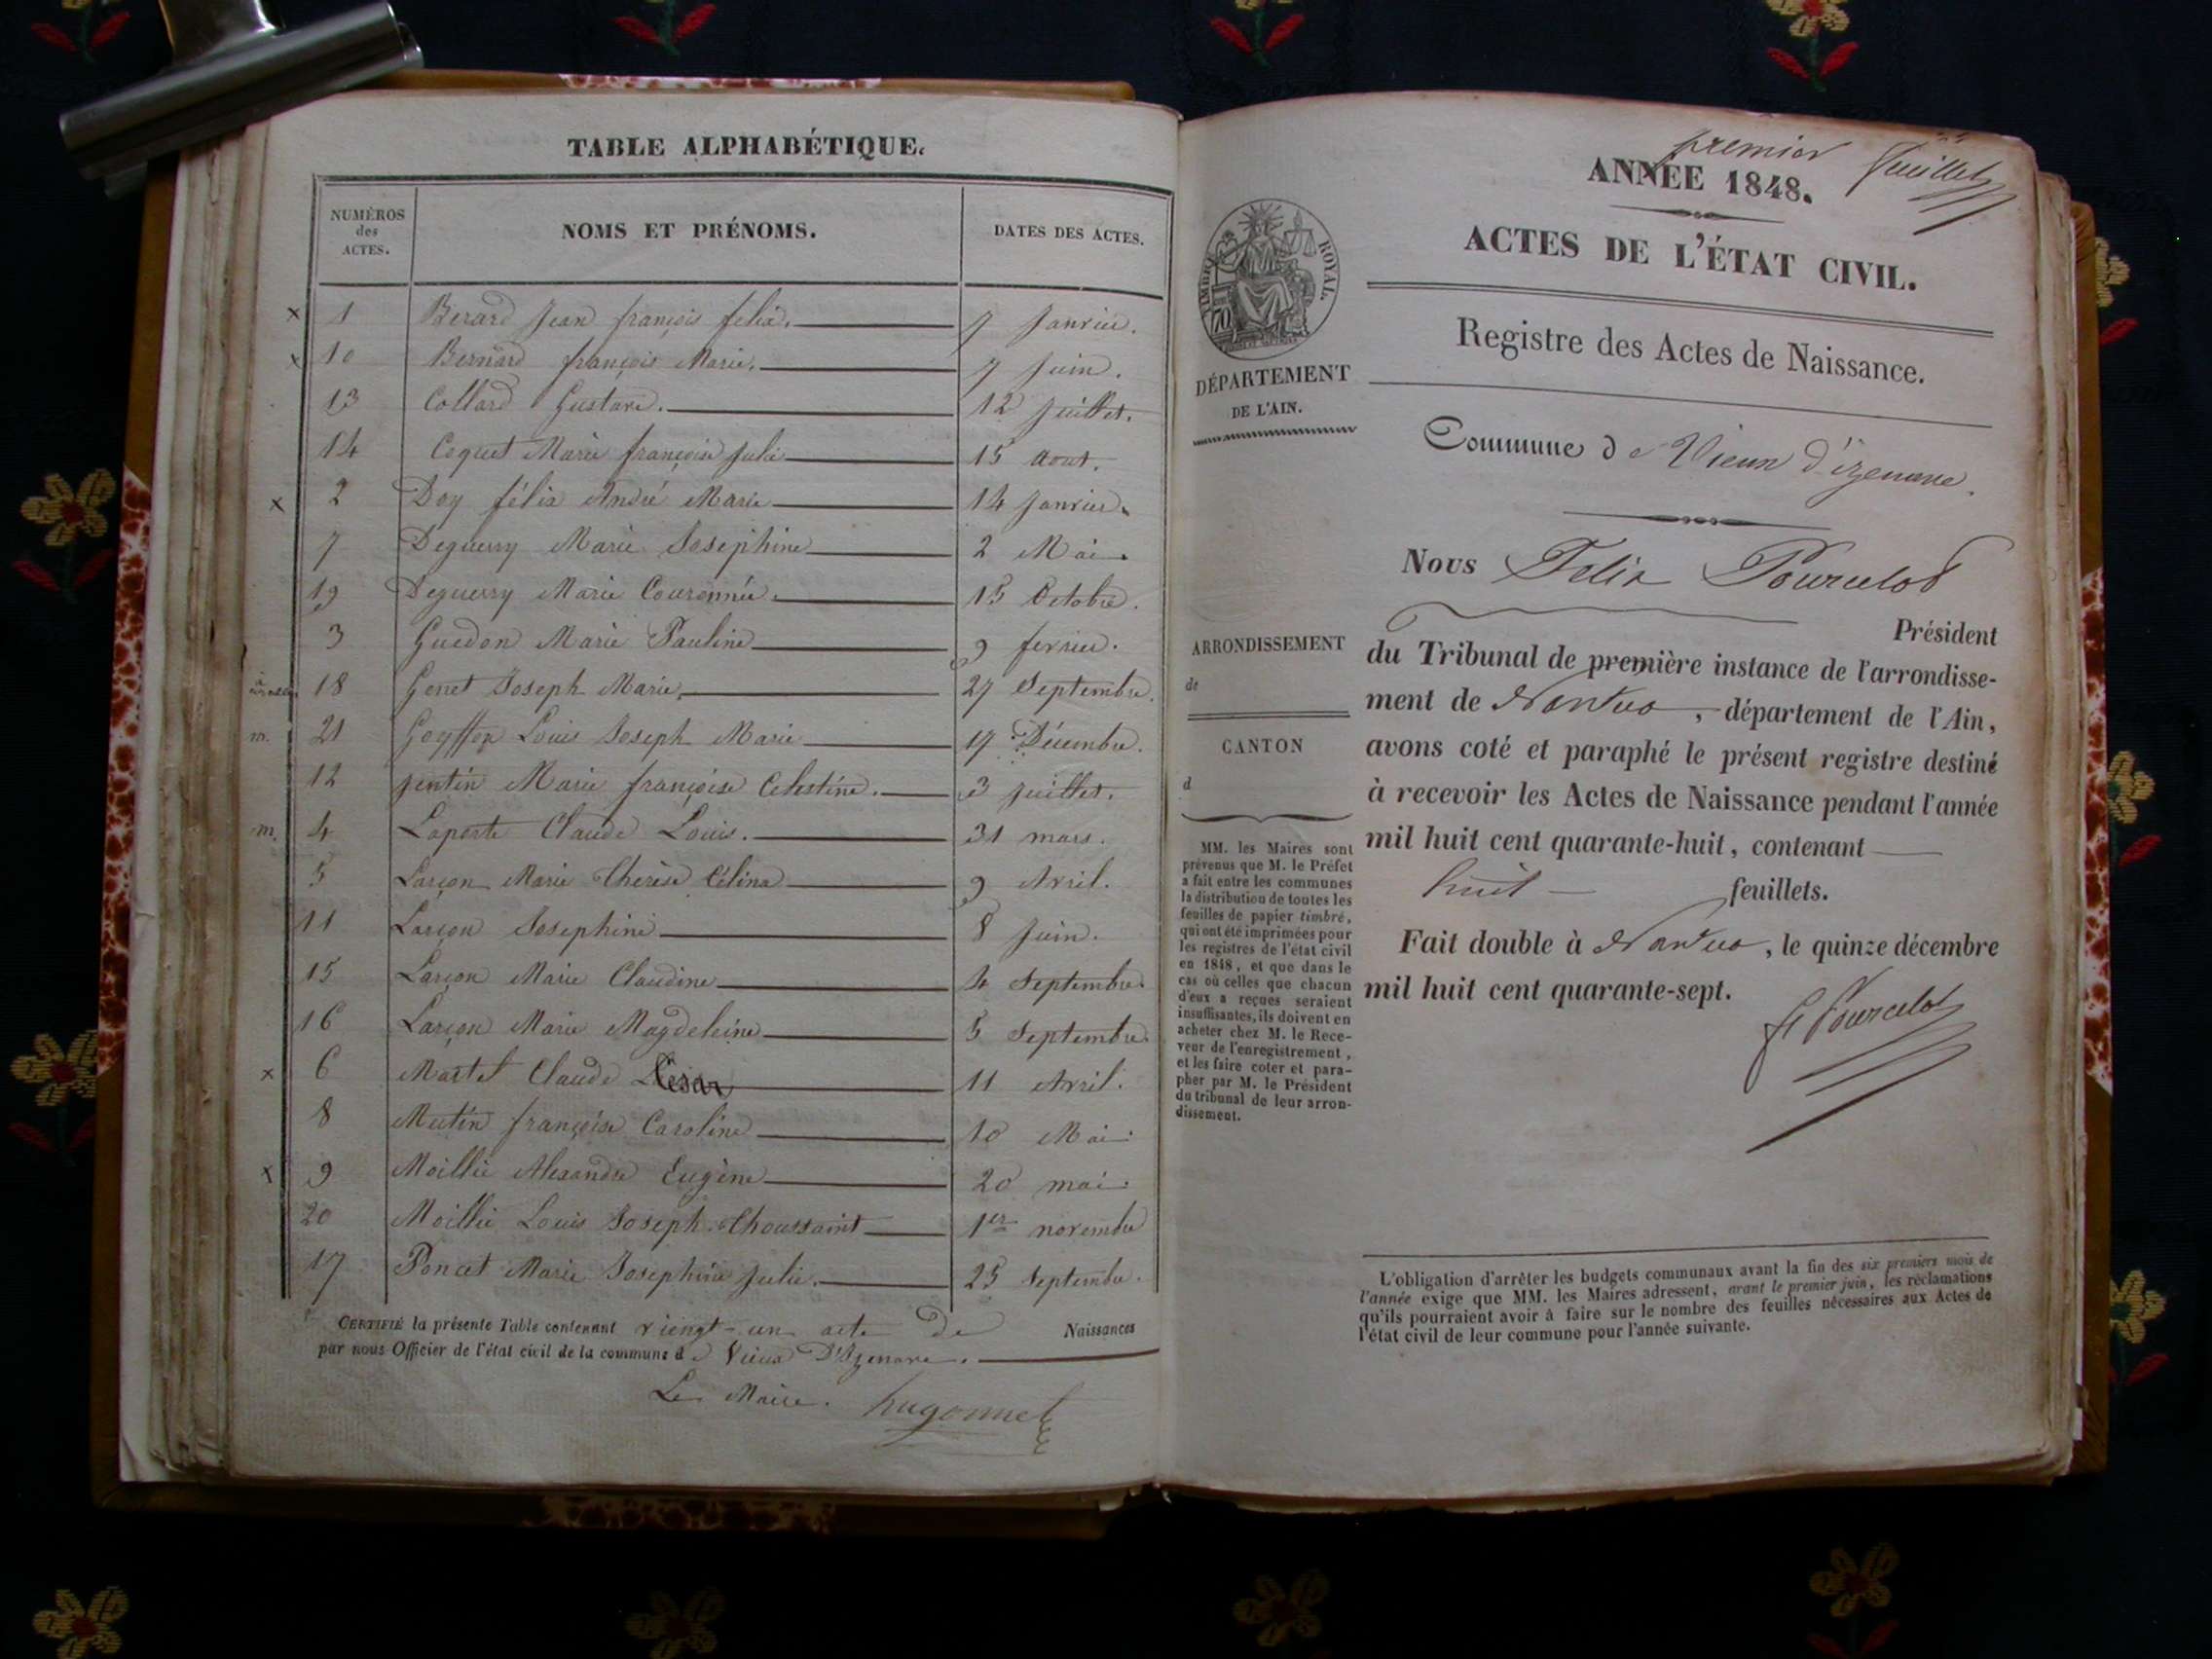 TABLE ALPHABÉTIQUE.
NUMÉROS des ACTES. NOMS ET PRÉNOMS. DATES DES ACTES.
x 1 Berard Jean françois felix. 7 Janvier.
x 10 Bernard françois Marie. 7 Juin.
13 Collard Gustave. 12 Juillet.
14 Coquet Marie françoise Julie 15 Aout.
x 2 Doy félix André Marie 14 Janvier.
7 Deguerry Marie Josephine 2 Mai.
19 Deguerry Marie Couronnée. 15 Octobre.
3 Guedon Marie Pauline 9 fevrier.
18 Genet Joseph Marie. 27 Septembre.
m. 21 Goyffon Louis Joseph Marie 17 Décembre.
12 jentin Marie françoise Celestine. 3 juillet.
m. 4 Laporte Claude Louis. 31 mars.
5 Larçon Marie Thérèse Célina 9 Avril.
11 Larçon Josephine 8 Juin.
15 Larçon Marie Claudine 4 Septembre.
16 Larçon Marie Magdeleine 5 Septembre.
x 6 Martel Claude Cesar 11 Avril.
8 Mutin françoise Caroline 10 Mai.
x 9 Moillie Alexandre Eugène 20 mai.
20 Moillie Louis Joseph Thoussaint 1er novembre
17 Poncet Marie Josephine Julie. 25 Septembre.
CERTIFIÉ la présente Table contenant viengt-un acte de Naissances
par nous Officier de l'état civil de la commune de Vieux D'Izenave.
Le Maire. hugonnet
premier feuillet
ANNÉE 1848.
ACTES DE L'ÉTAT CIVIL.
Registre des Actes de Naissance.
Commune de Vieux d'izenave.
TIMBRE ROYAL.
70
DÉPARTEMENT
DE L'AIN.
ARRONDISSEMENT
de
CANTON
d
MM. les Maires sont
prévenus que M. le Préfet
a fait entre les communes
la distribution de toutes les
feuilles de papier timbré,
qui ont été imprimées pour
les registres de l'état civil
en 1848, et que dans le
cas où celles que chacun
d'eux a reçues seraient
insuffisantes, ils doivent en
acheter chez M. le Rece-
veur de l'enregistrement,
et les faire coter et para-
pher par M. le Président
du tribunal de leur arron-
dissement.
Nous Felix Pourcelot
Président
du Tribunal de première instance de l'arrondisse-
ment de Nantua, département de l'Ain,
avons coté et paraphé le présent registre destiné
à recevoir les Actes de Naissance pendant l'année
mil huit cent quarante-huit, contenant
huit feuillets.
Fait double à Nantua, le quinze décembre
mil huit cent quarante-sept.
f Pourcelot
L'obligation d'arrêter les budgets communaux avant la fin des six premiers mois de
l'année exige que MM. les Maires adressent, avant le premier juin, les réclamations
qu'ils pourraient avoir à faire sur le nombre des feuilles nécessaires aux Actes de
l'état civil de leur commune pour l'année suivante.